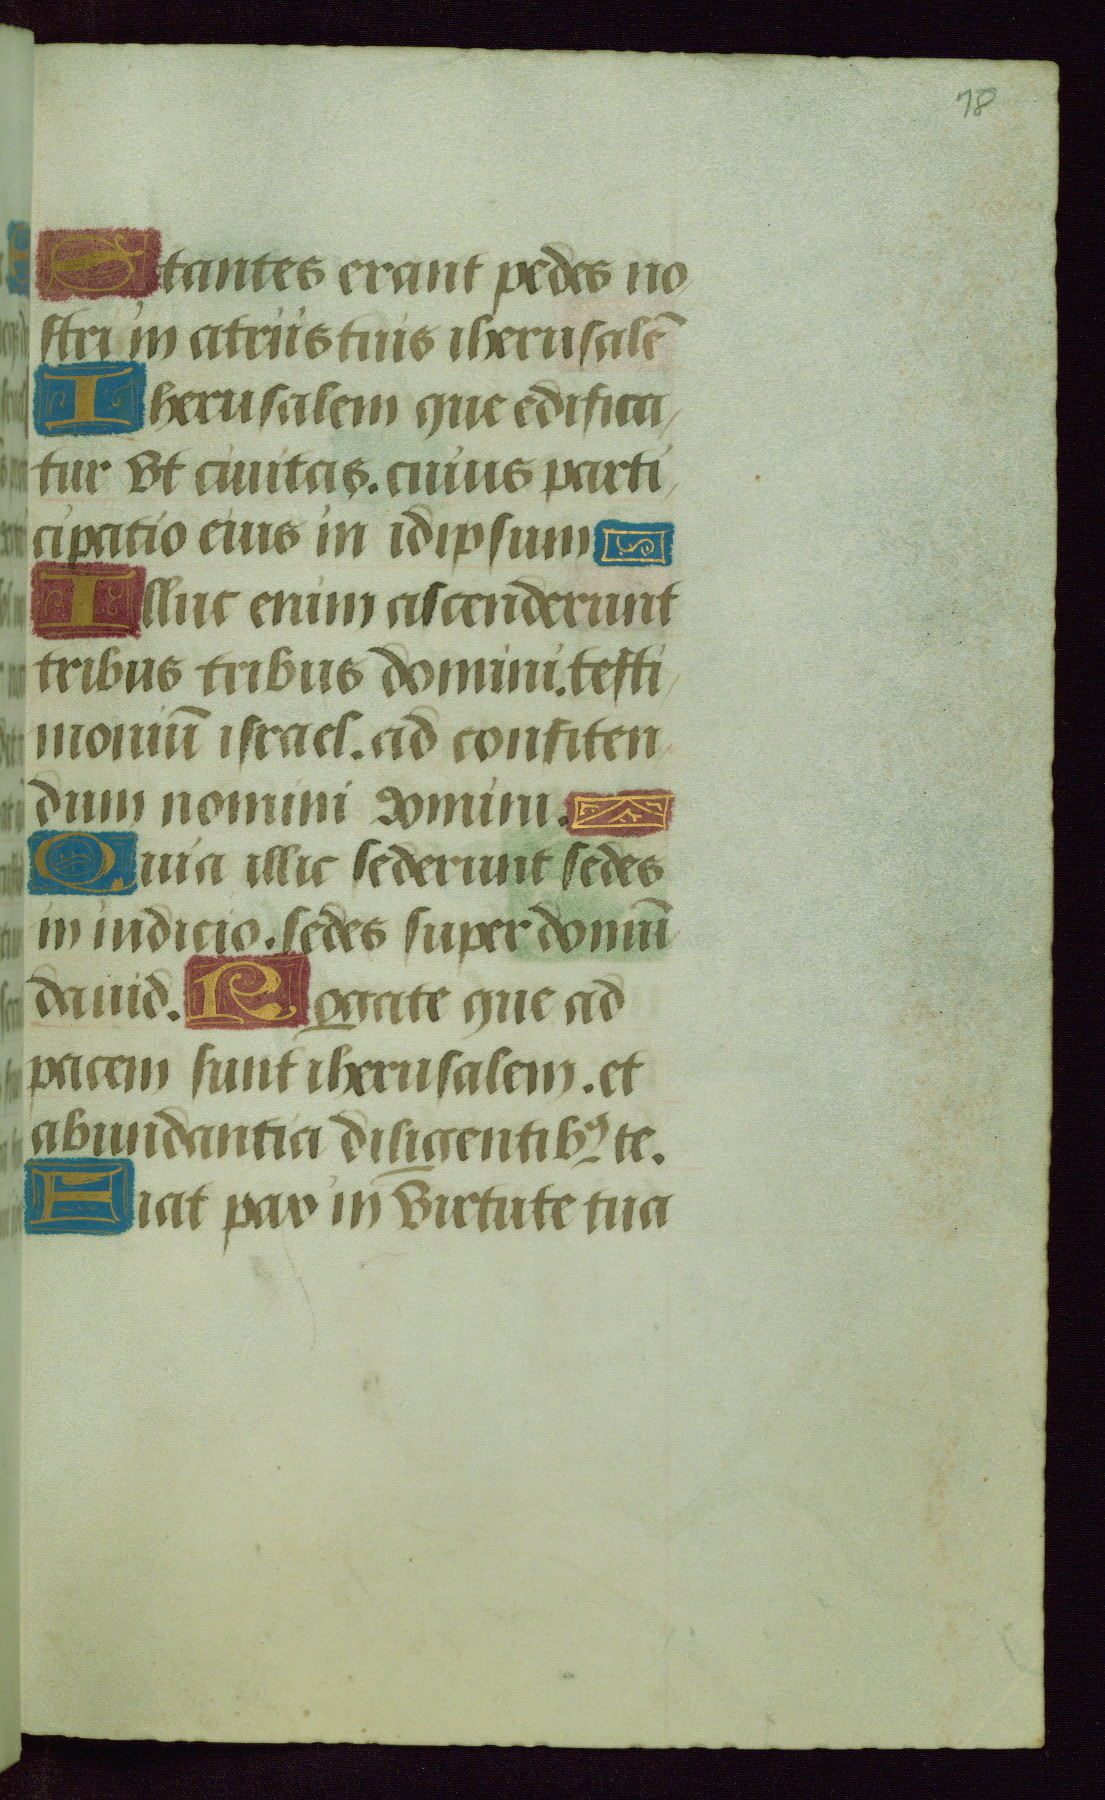 78
Stantes erant pedes no
stri in atriis tuis iherusalē
Iherusalem que edifica
tur vt ciuitas. cuius parti
cipatio eius in idipsum
Illuc enim ascenderunt
tribus tribus domini. testi
moniū israel. ad confiten
dum nomini domini.
Quia illic sederunt sedes
in iudicio. sedes super domū
dauid. Rogate que ad
pacem sunt iherusalem. et
abundantia diligentibꝰ te.
Fiat pax in virtute tua